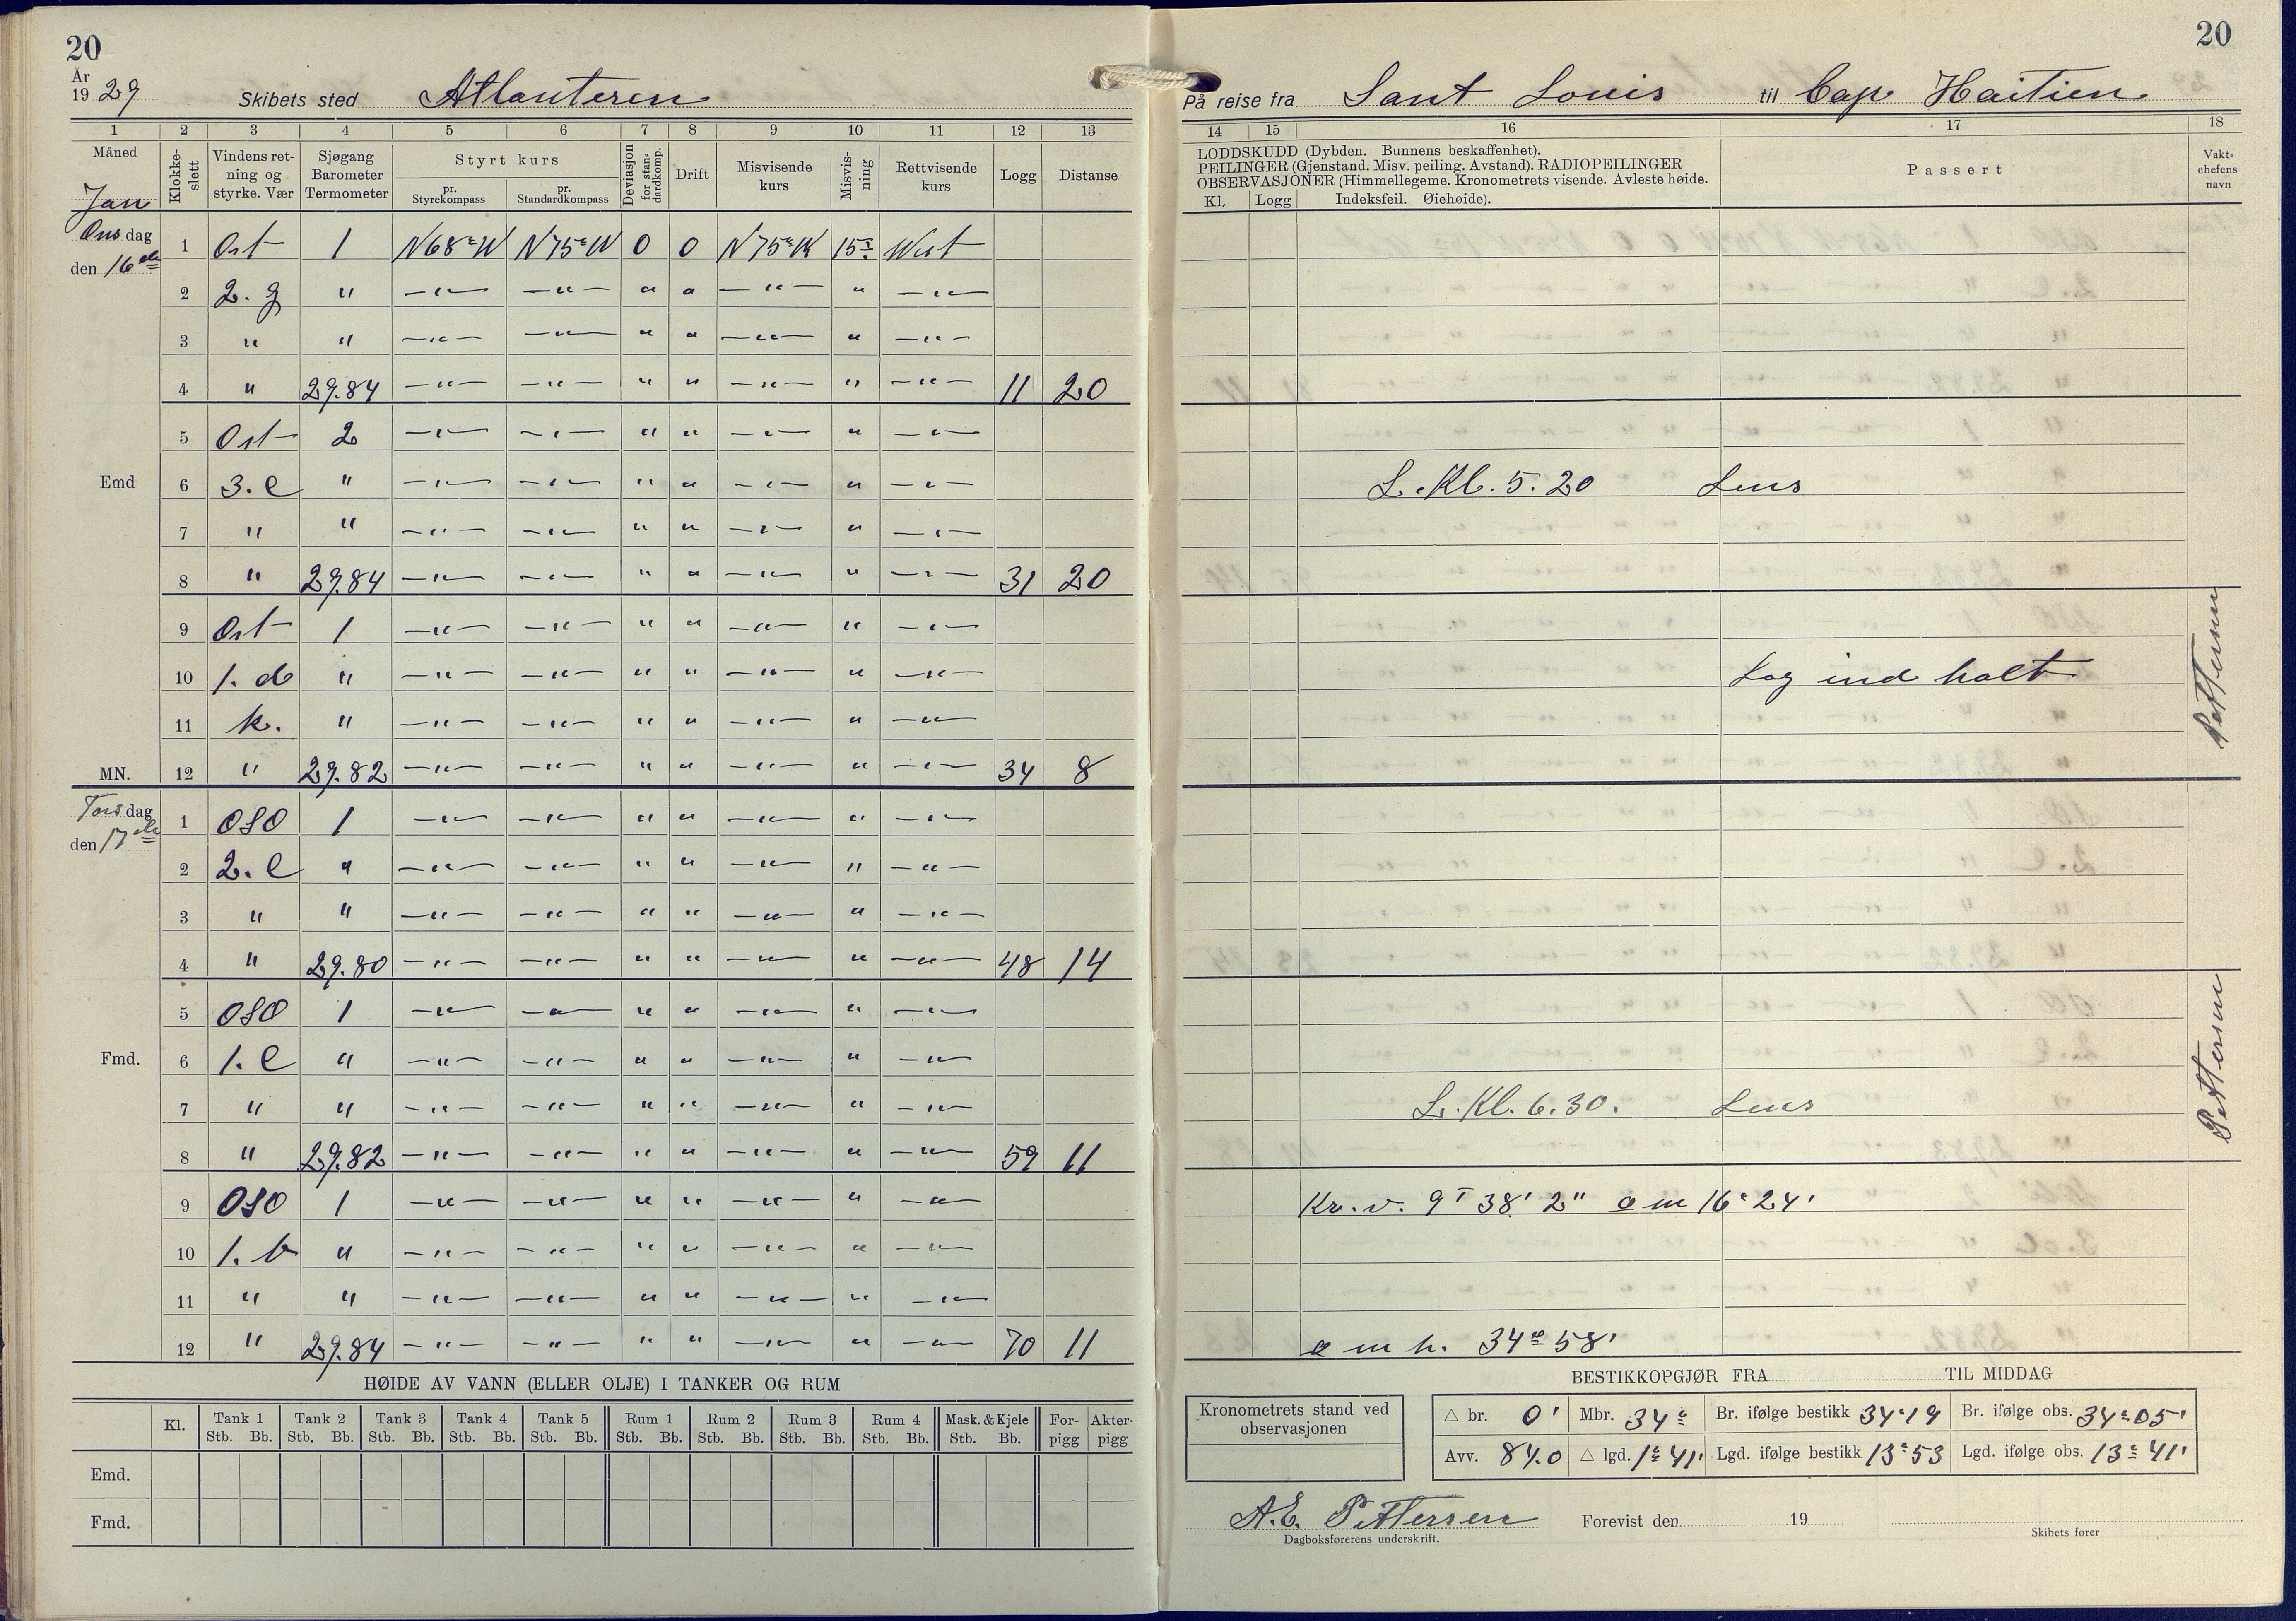 20
År 1929 Skibets sted Atlanteren
1 2 3 4 5 6 7 8 9 10 11 12 13
Måned Jan
Klokkeslett
Vindens retning og styrke. Vær
Sjøgang Barometer Termometer
Styrt kurs
pr. Styrekompass
pr. Standardkompass
Deviasjon for standardkomp.
Drift
Misvisende kurs
Misvisning
Rettvisende kurs
Logg
Distanse
Onsdag den 16de
1 Ost 1 N68°W N75°W 0 0 N75°W 15 West
2 2. g " —"— —"— " " —"— " —"—
3 " " —"— —"— " " —"— " —"—
4 " 29.84 —"— —"— " " —"— " —"— 11 20
5 Ost 2 —"— —"— " " —"— " —"—
Emd 6 3. c " —"— —"— " " —"— " —"—
7 " " —"— —"— " " —"— " —"—
8 " 29.84 —"— —"— " " —"— " —"— 31 20
9 Ost 1 —"— —"— " " —"— " —"—
10 1. d " —"— —"— " " —"— " —"—
11 k. " —"— —"— " " —"— " —"—
MN. 12 " 29.82 —"— —"— " " —"— " —"— 34 8
Torsdag den 17de
1 OSO 1 —"— —"— " " —"— " —"—
2 2. c " —"— —"— " " —"— " —"—
3 " " —"— —"— " " —"— " —"—
4 " 29.80 —"— —"— " " —"— " —"— 48 14
5 OSO 1 —"— —"— " " —"— " —"—
Fmd. 6 1. c " —"— —"— " " —"— " —"—
7 " " —"— —"— " " —"— " —"—
8 " 29.82 —"— —"— " " —"— " —"— 59 11
9 OSO 1 —"— —"— " " —"— " —"—
10 1. b " —"— —"— " " —"— " —"—
11 " " —"— —"— " " —"— " —"—
12 " 29.84 —"— —"— " " —"— " —"— 70 11
HØIDE AV VANN (ELLER OLJE) I TANKER OG RUM
Kl. Tank 1 Tank 2 Tank 3 Tank 4 Tank 5 Rum 1 Rum 2 Rum 3 Rum 4 Mask. & Kjele Forpigg Akterpigg
Stb. Bb. Stb. Bb. Stb. Bb. Stb. Bb. Stb. Bb. Stb. Bb. Stb. Bb. Stb. Bb. Stb. Bb. Stb. Bb.
Emd.
Fmd.
20
På reise fra Sant Louis til Cap Haitien
14 15 16 17 18
LODDSKUDD (Dybden. Bunnens beskaffenhet).
PEILINGER (Gjenstand. Misv. peiling. Avstand). RADIOPEILINGER
OBSERVASJONER (Himmellegeme. Kronometrets visende. Avleste høide.
Kl. Logg Indeksfeil. Øiehøide).
Passert
Vaktchefens navn
L. Kl. 5. 20 Lens
Log ind halt
Pettersen
L. Kl. 6. 30. Lens
Pettersen
Kr. v. 9 38' 2" o m 16° 24'
o m h. 34° 58'
BESTIKKOPGJØR FRA TIL MIDDAG
Kronometrets stand ved observasjonen
△ br. 0' Mbr. 34° Br. ifølge bestikk 34°19 Br. ifølge obs. 34°05'
Avv. 84.0 △ lgd. 1°41' Lgd. ifølge bestikk 13°53 Lgd. ifølge obs. 13°41'
A. E. Pettersen Forevist den 19
Dagboksførerens underskrift. Skibets fører